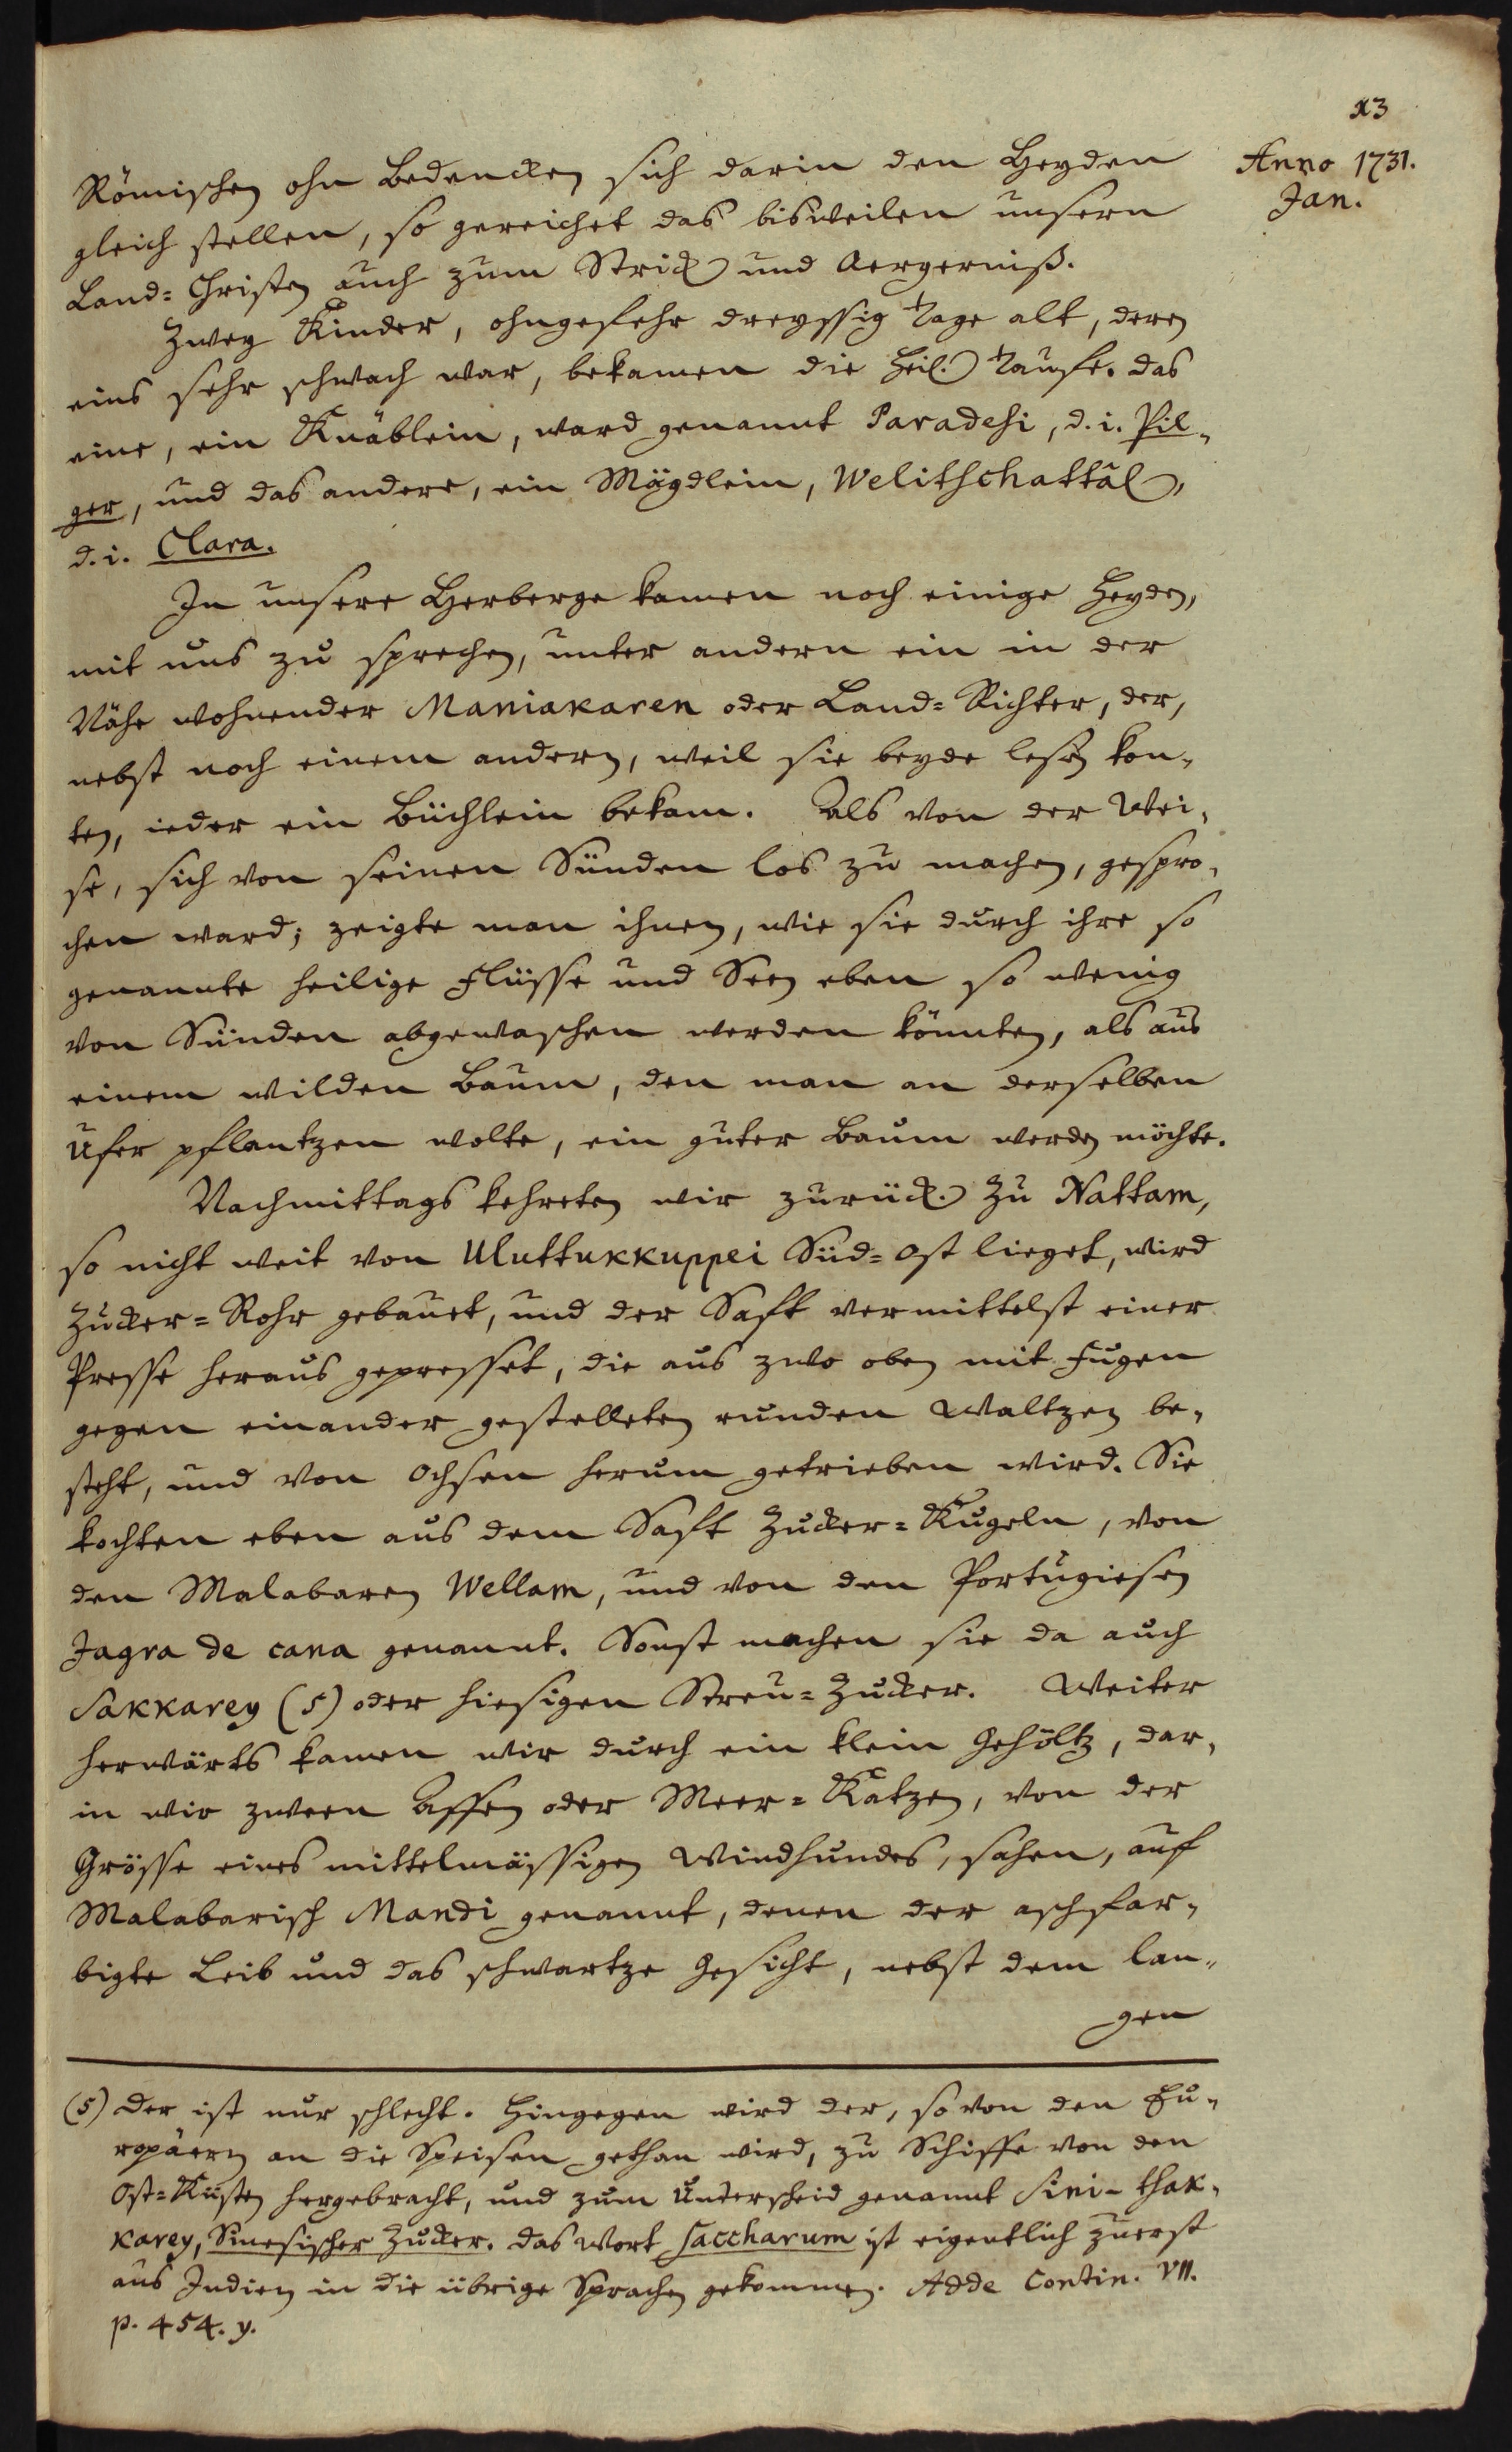 13
Anno 1731.
Jan.
Römischen ohn Bedencken sich darin den Heyden
gleich stellen, so gereichet das bisweilen unsern
Land=Christen auch zum Strick und Aergerniß.
Zwey Kinder, ohngefehr dreyssig Tage alt, deren
eins sehr schwach war, bekamen die heil. Taufe. das
eine, ein Knäblein, ward genannt Paradesi, d. i. Pil-
ger, und das andere, ein Mägdlein, Welitschattāl,
d. i. Clara.
In unsere Herberge kamen noch einige Heyden,
mit uns zu sprechen, unter andern ein in der
Nähe wohnender Maniakaren oder Land=Richter, der,
nebst noch einem andern, weil sie beyde lesen kon-
ten, ieder ein Büchlein bekam. Als von der Wei-
se, sich von seinen Sünden los zu machen, gespro-
chen ward; zeigte man ihnen, wie sie durch ihre so
genannte heilige Flüsse und Seen eben so wenig
von Sünden abgewaschen werden könnten, als aus
einem wilden Baum, den man an derselben
Ufer pflantzen wolte, ein guter Baum werden möchte.
Nachmittags kehreten wir zurück. Zu Nattam,
so nicht weit von Uluttukkuppei Süd=Ost lieget, wird
Zucker=Rohr gebauet, und der Saft vermittelst einer
Presse heraus gepresset, die aus zwo oben mit Fugen
gegen einander gestelleten runden Waltzen be-
steht, und von Ochsen herum getrieben wird. Sie
kochten eben aus dem Saft Zucker=Kugeln, von
den Malabaren Wellam, und von den Portugiesen
Jagra de cana genannt. Sonst machen sie da auch
Sakkarey (5) oder hiesigen Streu=Zucker. Weiter
herwärts kamen wir durch ein klein Gehöltz, dar-
in wir zween Affen oder Meer=Katzen, von der
Grösse eines mittelmässigen Windhundes, sahen, auf
Malabarisch Mandi genannt, denen der aschfar-
bigte Leib und das schwartze Gesicht, nebst dem lan-
gen
(5) Der ist nur schlecht. Hingegen wird der, so von den Eu-
ropäern an die Speisen gethan wird, zu Schiffe von den
Ost=Küsten hergebracht, und zum Unterscheid genannt Sini-thak-
karey, Sinesischer Zucker. das Wort Saccharum ist eigentlich zuerst
aus Indien in die übrige Sprachen gekommen. Adde Contin. VII.
p. 454. y.